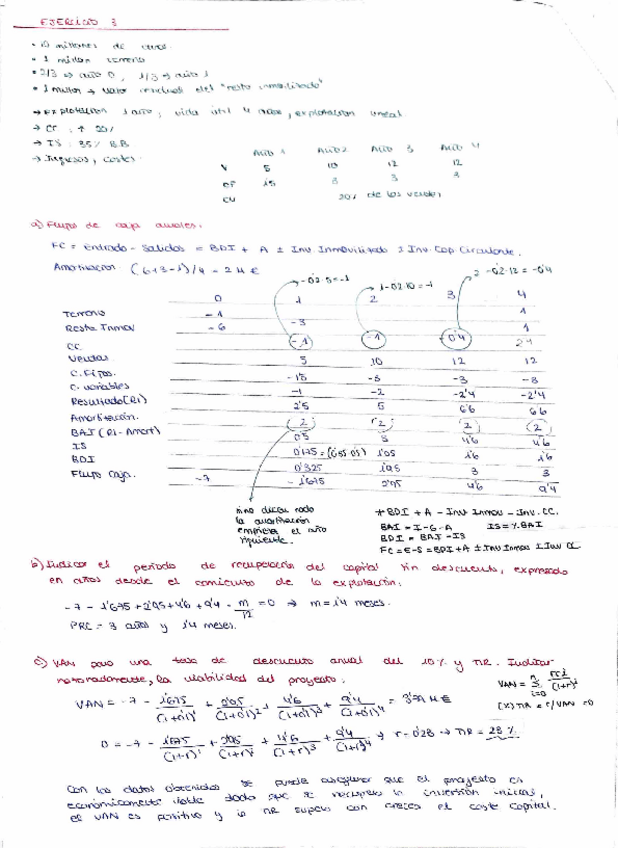 EJERCICIO 3
• 10 millones de euros.
• 1 millón terreno
• 2/3 → año 0, 1/3 → año 1
• 1 millon → valor residual del "resto inmovilizado"
→ explotación 1 año, vida útil 4 años, explotación lineal
→ CC: ↑ 20%
→ IS: 35% B.B
→ Ingresos, costes:
Año 1 Año 2 Año 3 Año 4
V 5 10 12 12
CF 1'5 3 3 3
CV 20% de las ventas
a) Flujos de caja anuales.
FC = Entrada - Salidas = BDI + A ± Inv. Inmovilizado ± Inv. Cap. Circulante.
Amortización (6+3-1)/4 = 2 M €
→ -0'2·5=-1
1-0'2·10=-1
2-0'2·12=-0'4
0 1 2 3 4
Terreno -1 1
Resto Inmov -6 -3 1
CC. -1 -1 -0'4 2'4
Ventas 5 10 12 12
C. Fijos. -1'5 -3 -3 -3
C. variables -1 -2 -2'4 -2'4
Resultado (Ri) 2'5 5 6'6 6'6
Amortización. (2) (2) (2) (2)
BAI (Ri - Amort) 0'5 3 4'6 4'6
IS 0'175=(0'35·0'5) 1'05 1'6 1'6
BDI 0'325 1'95 3 3
Flujo Caja. -7 -1'675 2'95 4'6 9'4
si no dicen nada
la amortización
empieza el año
siguiente.
* BDI + A - Inv Inmov - Inv. CC.
BAI = I - G - A IS = %·BAI
BDI = BAI - IS
FC = E-S = BDI + A ± Inv Inmov ± Inv CC
b) Indicar el periodo de recuperación del capital sin descuento, expresado
en años desde el comienzo de la explotación.
-7 - 1'675 + 2'95 + 4'6 + 9'4 · m/12 = 0 → m = 1'4 meses.
PRC = 3 años y 1'4 meses.
c) VAN para una tasa de descuento anual del 10% y TIR. Indicar
razonadamente, la viabilidad del proyecto.
VAN = Σ FCi/(1+r)^i
i=0
(*) TIR = r / VAN = 0
VAN = -7 - 1'675/(1+0'1)^1 + 2'95/(1+0'1)^2 + 4'6/(1+0'1)^3 + 9'4/(1+0'1)^4 = 3'79 M €
0 = -7 - 1'675/(1+r)^1 + 2'95/(1+r)^2 + 4'6/(1+r)^3 + 9'4/(1+r)^4 → r = 0'28 → TIR = 28 %
Con los datos obtenidos se puede asegurar que el proyecto es
económicamente viable dado que se recupera la inversión inicial,
el VAN es positivo y la TIR supera con creces el coste capital.